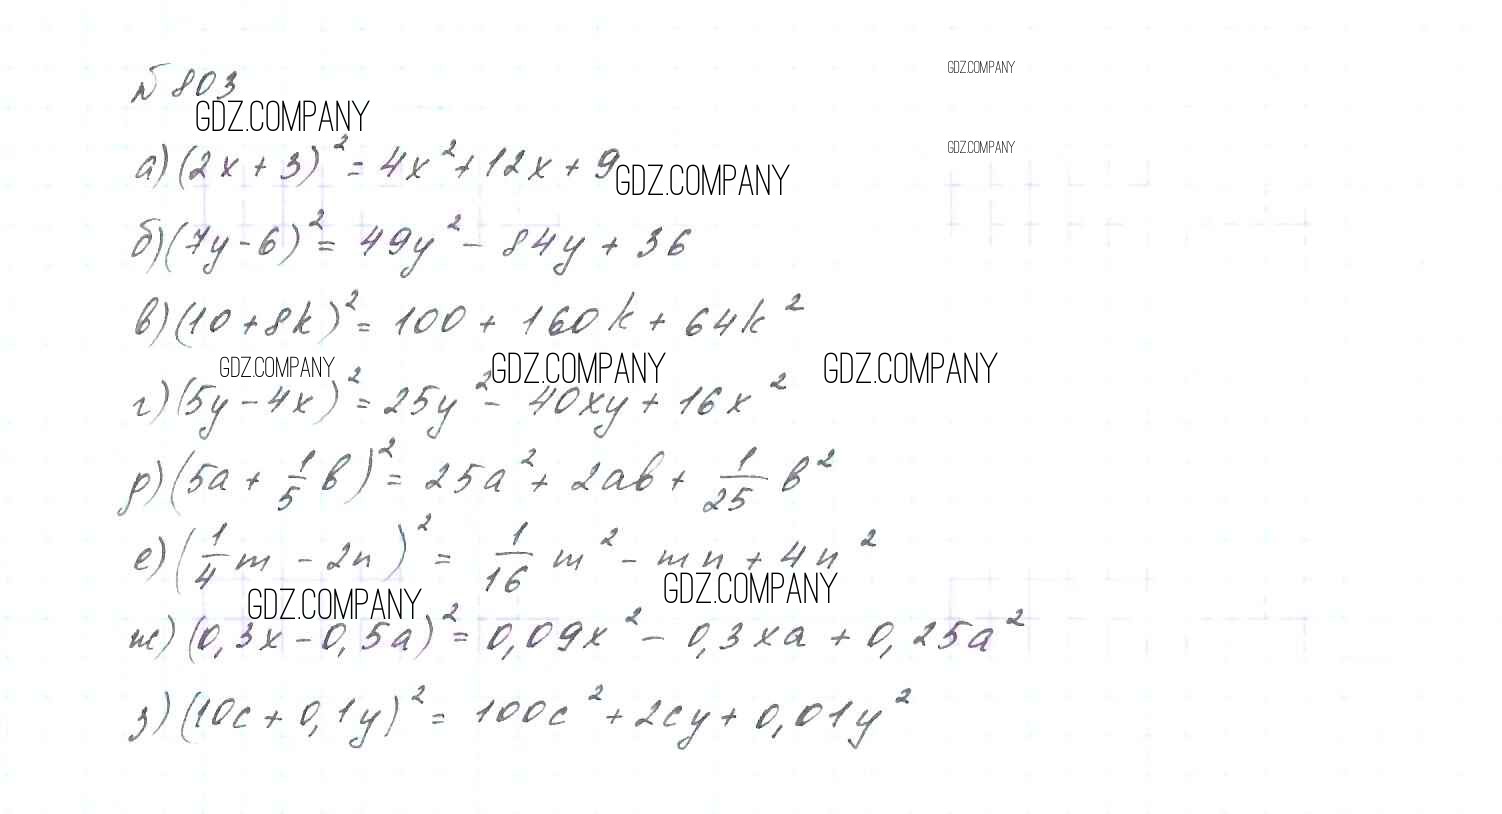 № 803
GDZ.COMPANY
GDZ.COMPANY
а) (2x + 3)² = 4x² + 12x + 9
GDZ.COMPANY
GDZ.COMPANY
б) (7y - 6)² = 49y² - 84y + 36
в) (10 + 8k)² = 100 + 160k + 64k²
GDZ.COMPANY GDZ.COMPANY GDZ.COMPANY
г) (5y - 4x)² = 25y² - 40xy + 16x²
д) (5a + 1/5 b)² = 25a² + 2ab + 1/25 b²
е) (1/4 m - 2n)² = 1/16 m² - mn + 4n²
GDZ.COMPANY GDZ.COMPANY
ж) (0,3x - 0,5a)² = 0,09x² - 0,3xa + 0,25a²
з) (10c + 0,1y)² = 100c² + 2cy + 0,01y²